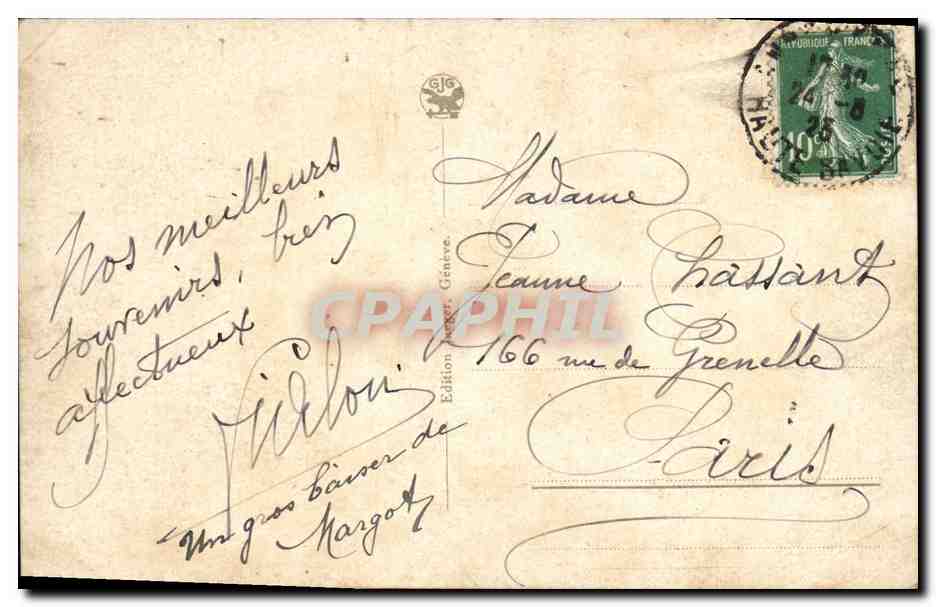 Nos meilleurs
souvenirs, bien
affectueux
Un gros baiser de
Margot
GJG
Edition Jaeger, Genève.
CPAPHIL
Madame
Jeanne Chassant
166 rue de Grenelle
Paris
REPUBLIQUE FRANÇAISE
24-8
25
10c
HAUTE SAVOIE